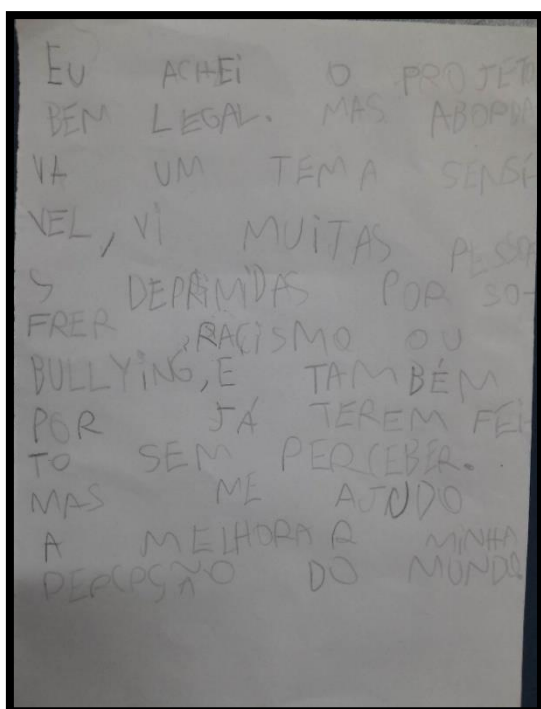 EU ACHEI O PROJETO
BEM LEGAL. MAS ABORDA
VA UM TEMA SENSÍ
VEL, VI MUITAS PESSOA
S DEPRIMIDAS POR SO-
FRER RACISMO OU
BULLYING, E TAMBÉM
POR JÁ TEREM FEI-
TO SEM PERCEBER.
MAS ME AJUDO
A MELHORAR MINHA
PERCPSÃO DO MUNDO.